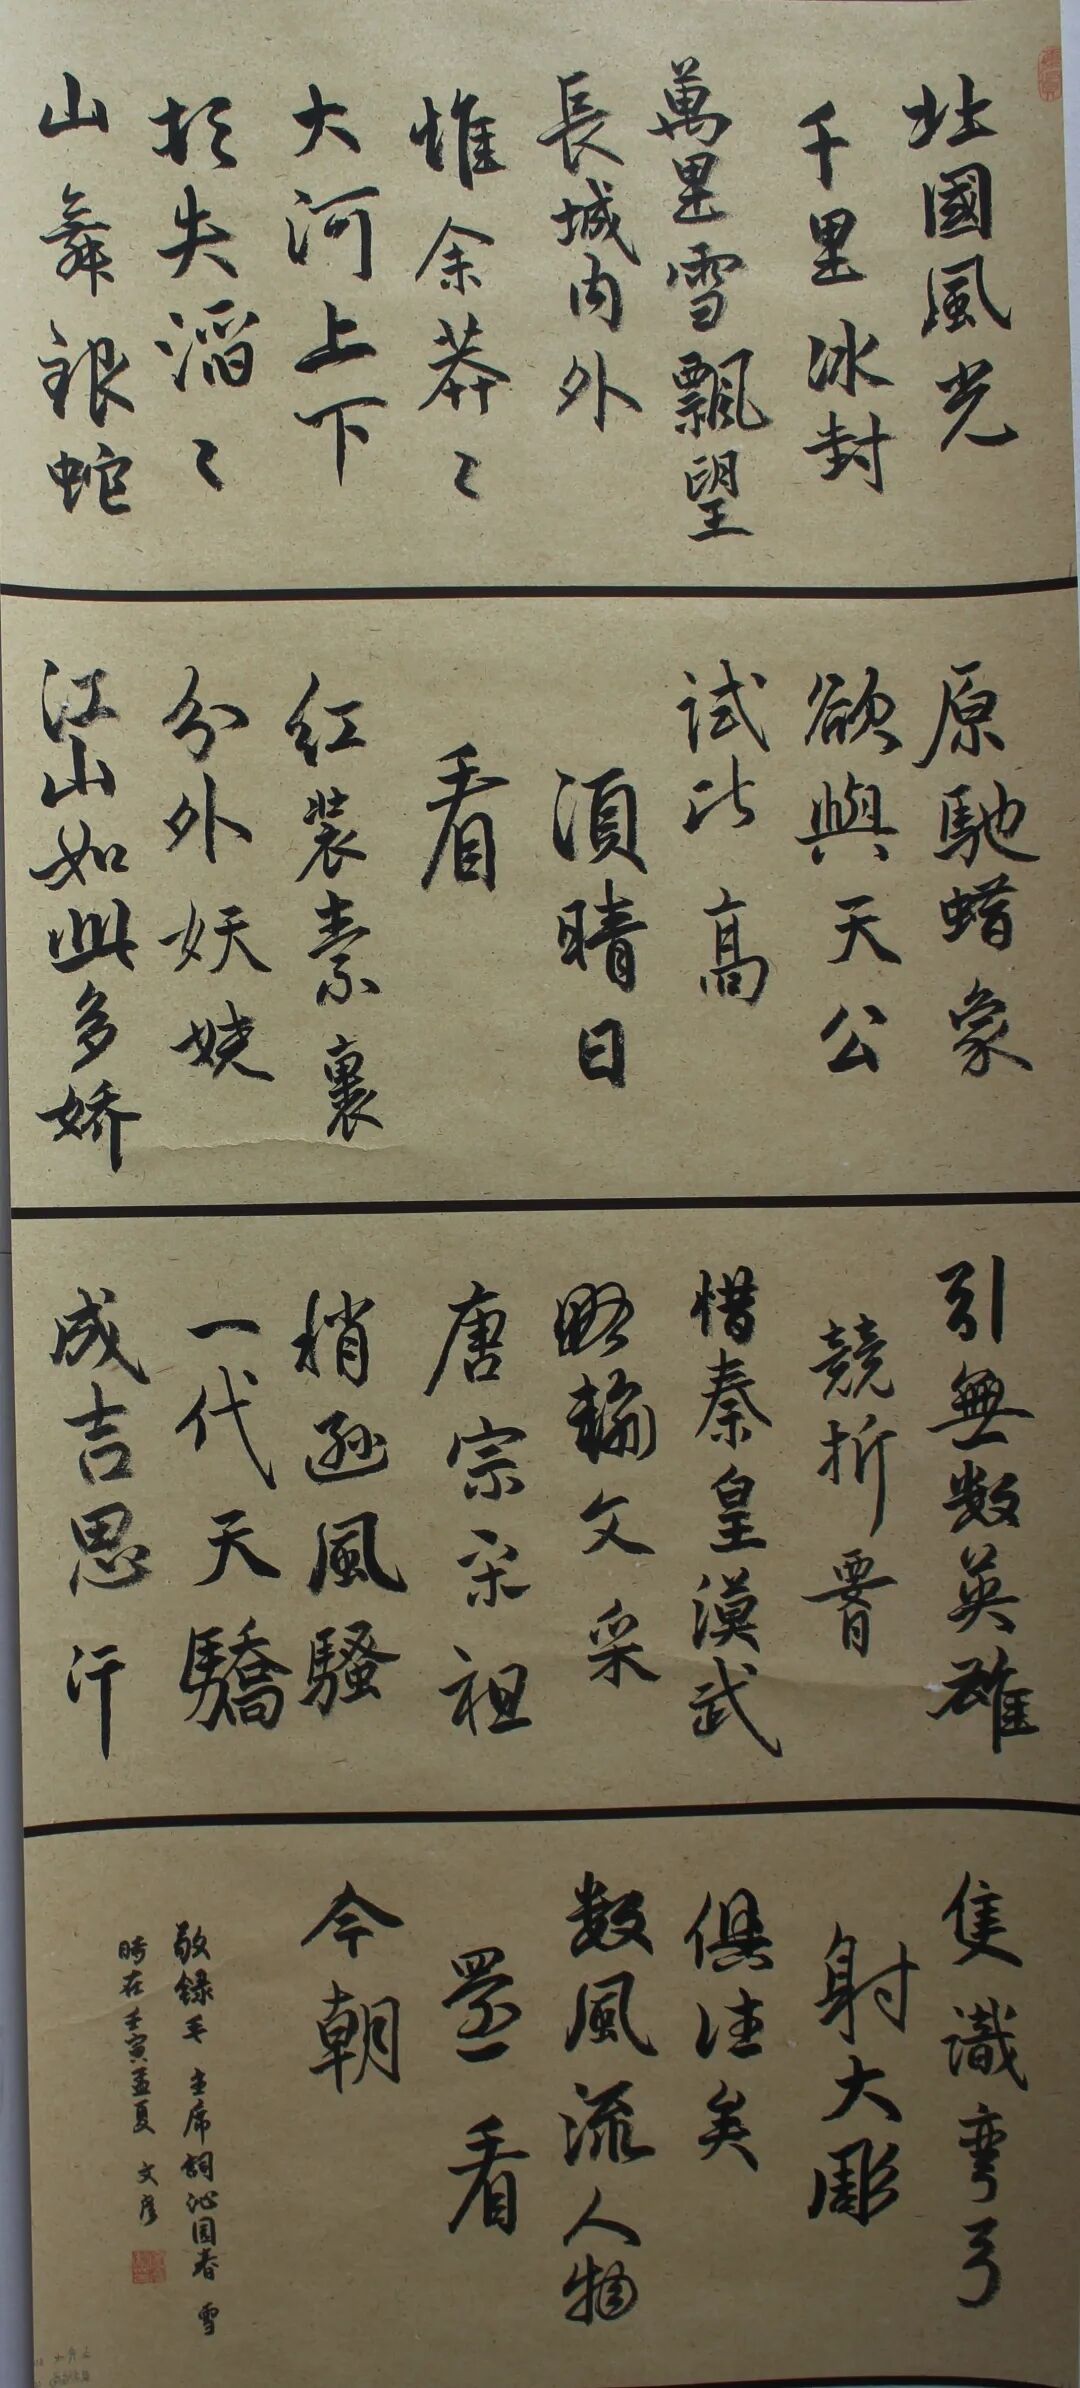 北國風光
千里冰封
萬里雪飄望
長城内外
惟余莽々
大河上下
頓失滔々
山舞銀蛇
原馳蜡象
欲與天公
試比高
須晴日
看
红装素裹
分外妖娆
江山如此多娇
引無数英雄
競折腰
惜秦皇漠武
略輸文采
唐宗宋祖
稍遜風騷
一代天驕
成吉思汗
隻識彎弓
射大彫
俱往矣
数風流人物
還看
今朝
敬録毛主席詞沁园春雪
時在壬寅孟夏 文彦